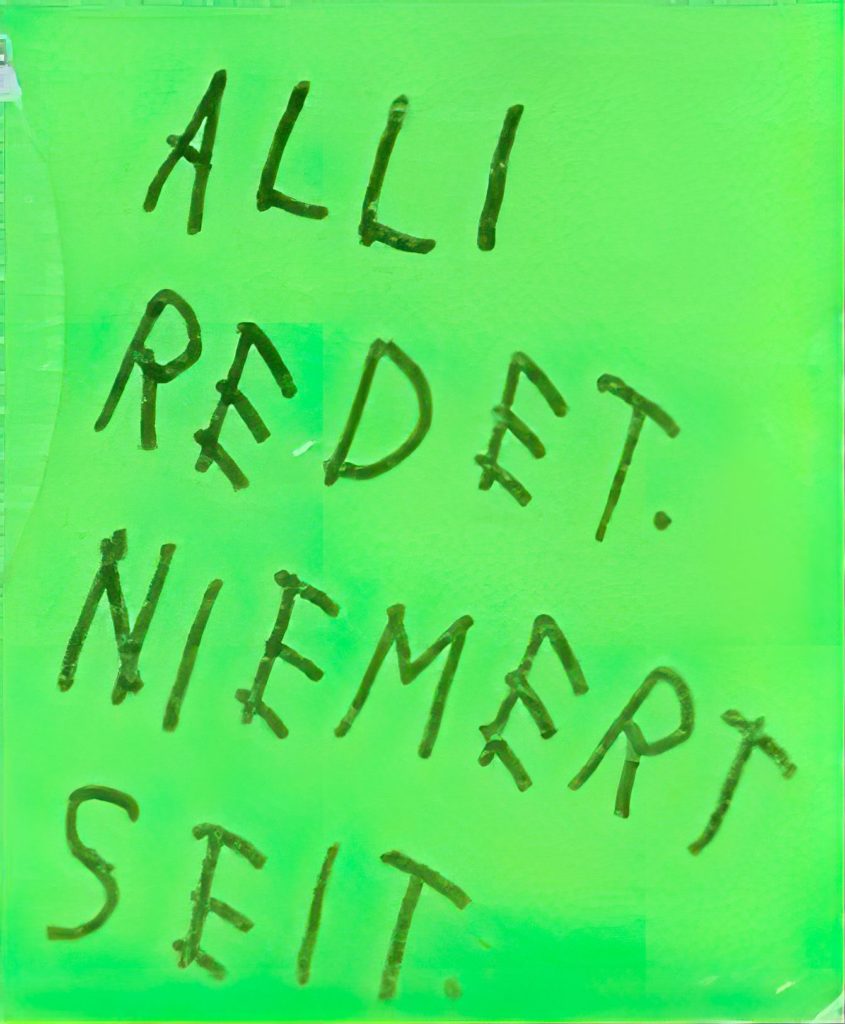 ALLI
REDET.
NIEMERT
SEIT.